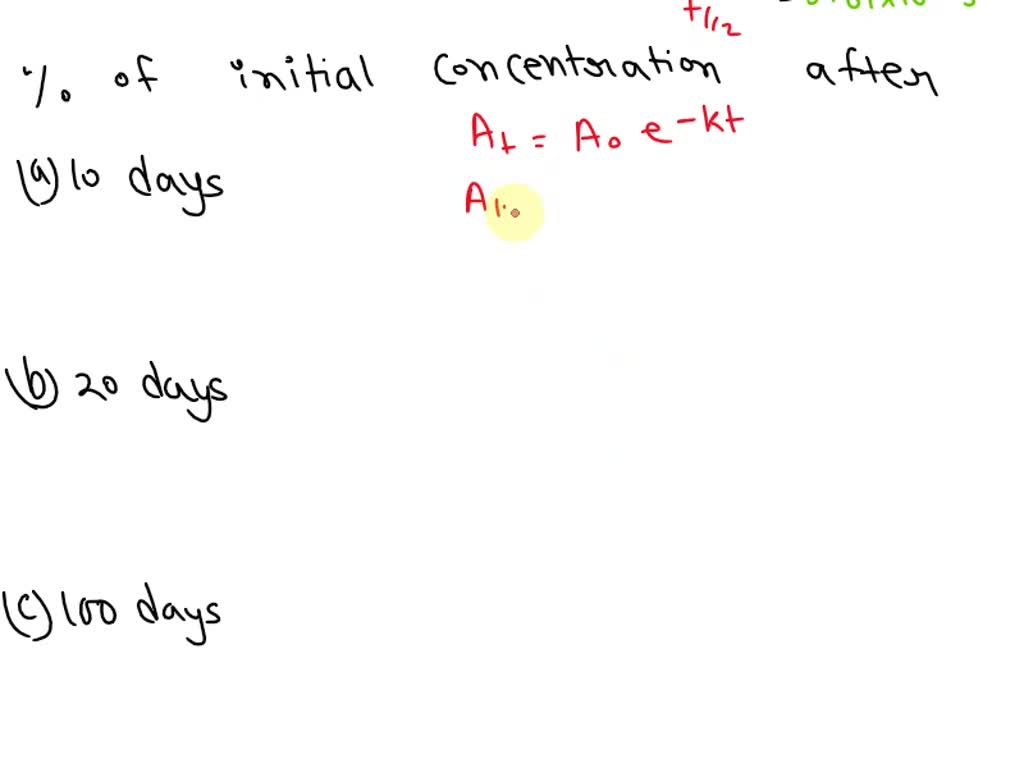 t1/2
% of initial concentration after
At = A0 e-kt
(a) 10 days
A1
(b) 20 days
(c) 100 days